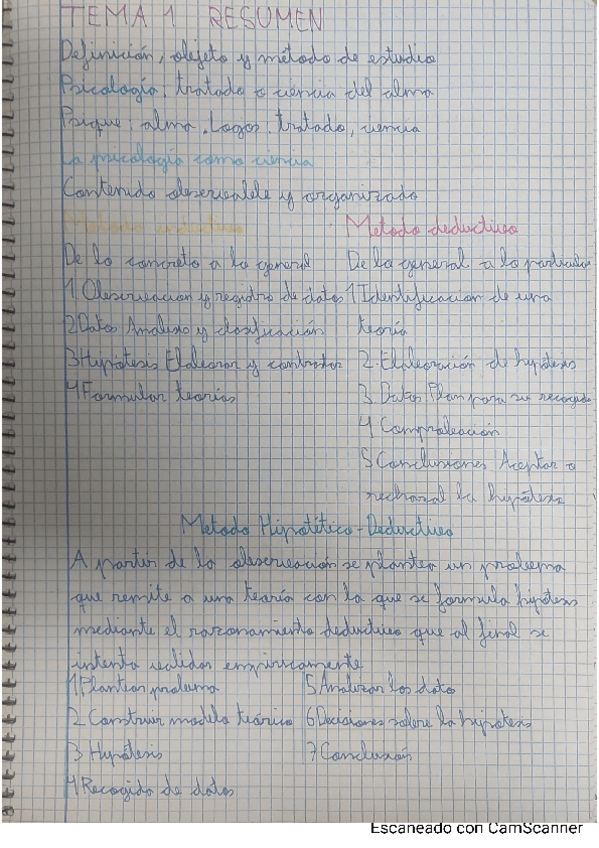 TEMA 1 RESUMEN
Definición, objeto y método de estudio
Psicología: tratado o ciencia del alma
Psique: alma. Logos: tratado, ciencia
La psicología como ciencia
Contenido observable y organizado
Metodo inductivo
De lo concreto a lo general
1 Observacion y registro de datos
2 Datos Analisis y clasificación
3 Hypótesis Elaborar y contrastar
4 Formular teorias
Metodo deductivo
De lo general a lo particular
1 Identificacion de una
teoría
2 Elaboración de hypótesis
3 Datos Plan para su recogida
4 Comprobación
5 Conclusiones Aceptar o
rechazal la hypótesis
Metodo Hipotético-Deductivo
A partir de la observación se plantea un problema
que remite a una teoría con la que se formula hypótesis
mediante el razonamiento deductivo que al final se
intenta validar empiricamente
1 Plantear problema
2 Construir modelo teórico
3 Hypótesis
4 Recogida de datos
5 Analizar los datos
6 Decisiones sobre la hipótesis
7 Conclusión
Escaneado con CamScanner